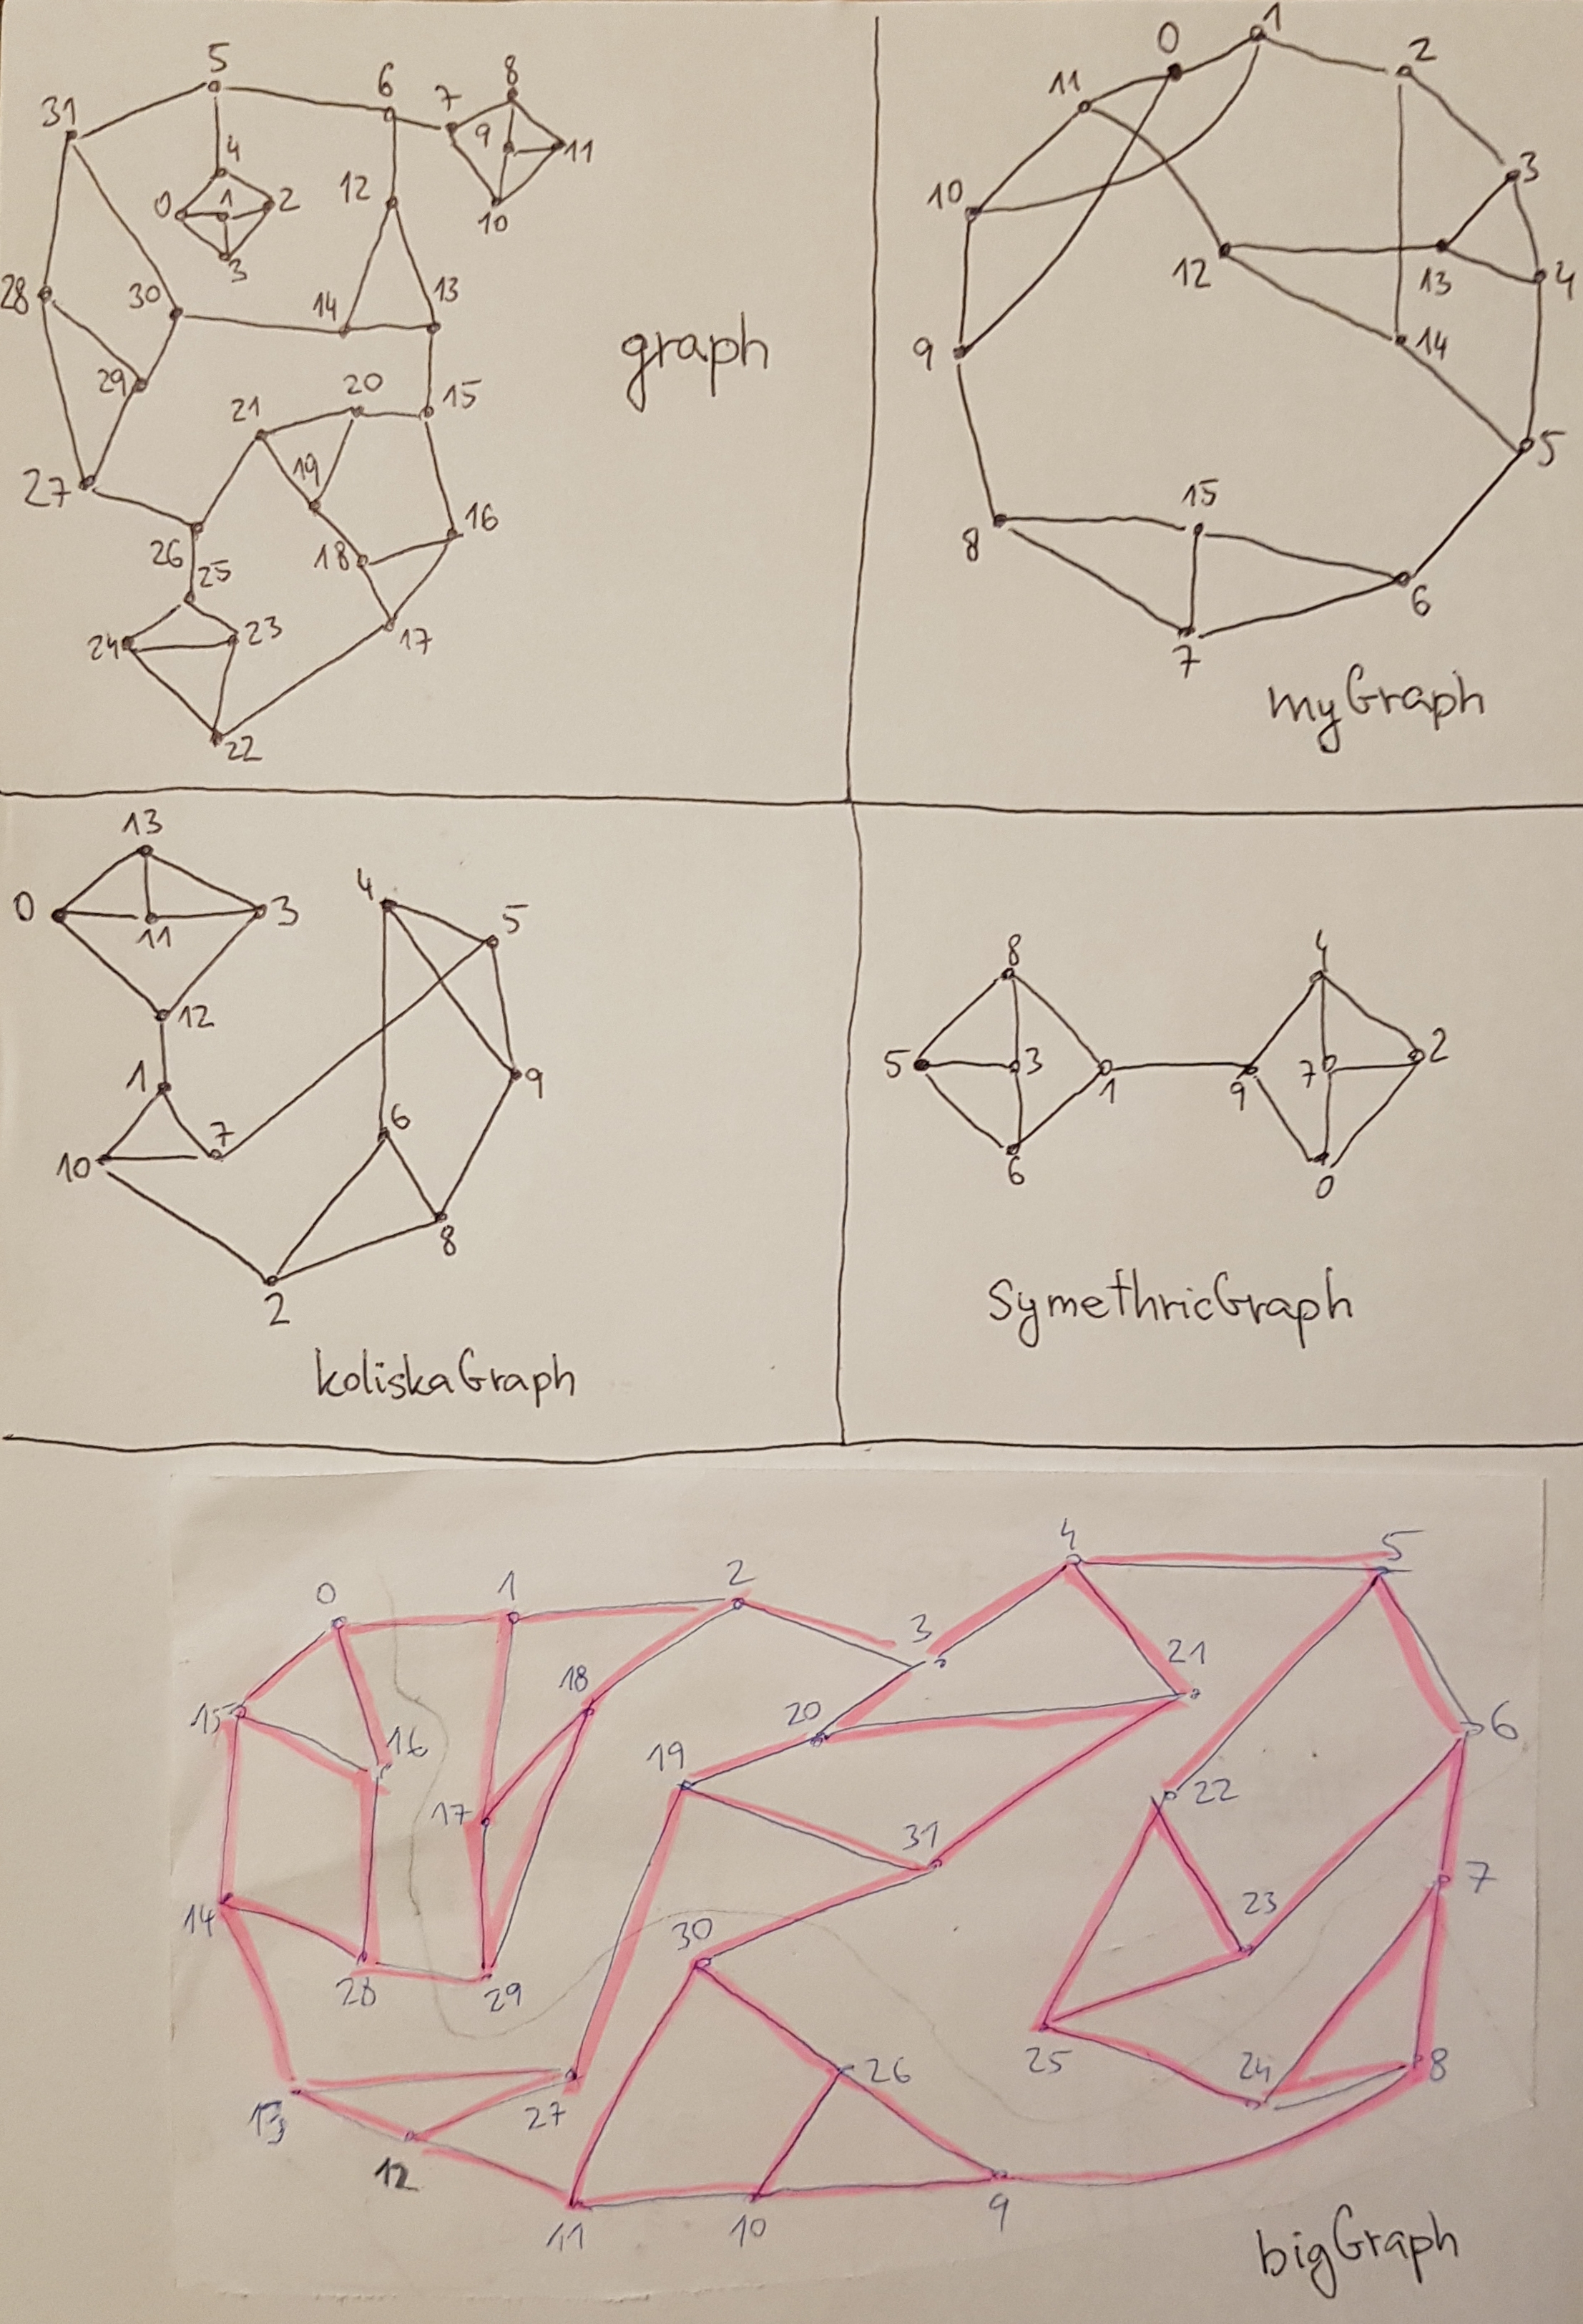 5
6
7
8
31
9
11
4
12
0
1
2
10
3
28
30
14
13
29
21
20
15
27
19
16
26
18
25
24
23
17
22
graph
0
1
2
11
3
10
12
13
4
14
9
5
15
8
6
7
myGraph
13
0
11
3
4
5
12
1
9
6
7
10
8
2
koliskaGraph
8
4
5
3
1
9
7
2
6
0
SymethricGraph
0
1
2
3
4
5
18
21
15
16
20
6
19
22
17
31
7
14
30
23
28
29
25
24
8
26
13
27
12
11
10
9
bigGraph